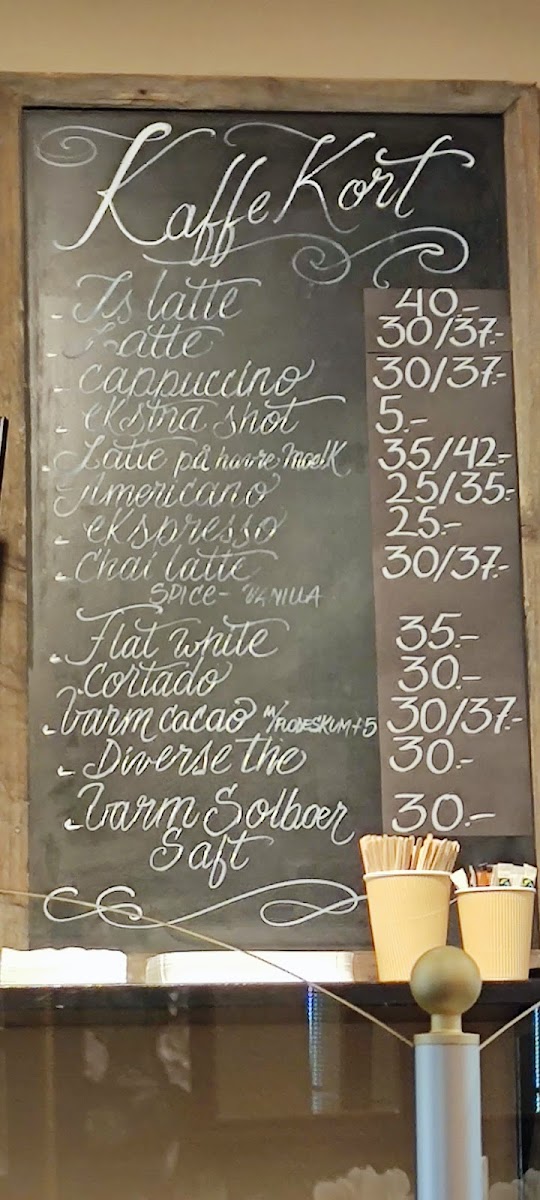 Kaffe Kort
- Is latte 40.-
- Latte 30/37.-
- Cappuccino 30/37.-
- ekstra shot 5.-
- Latte på havre mælk 35/42.-
- Americano 25/35.-
- ekspresso 25.-
- Chai latte 30/37.-
SPICE - VANILLA
- Flat white 35.-
- Cortado 30.-
- Varm cacao m/FLØDESKUM +5 30/37.-
- Diverse the 30.-
- Varm Solbær 30.-
Saft